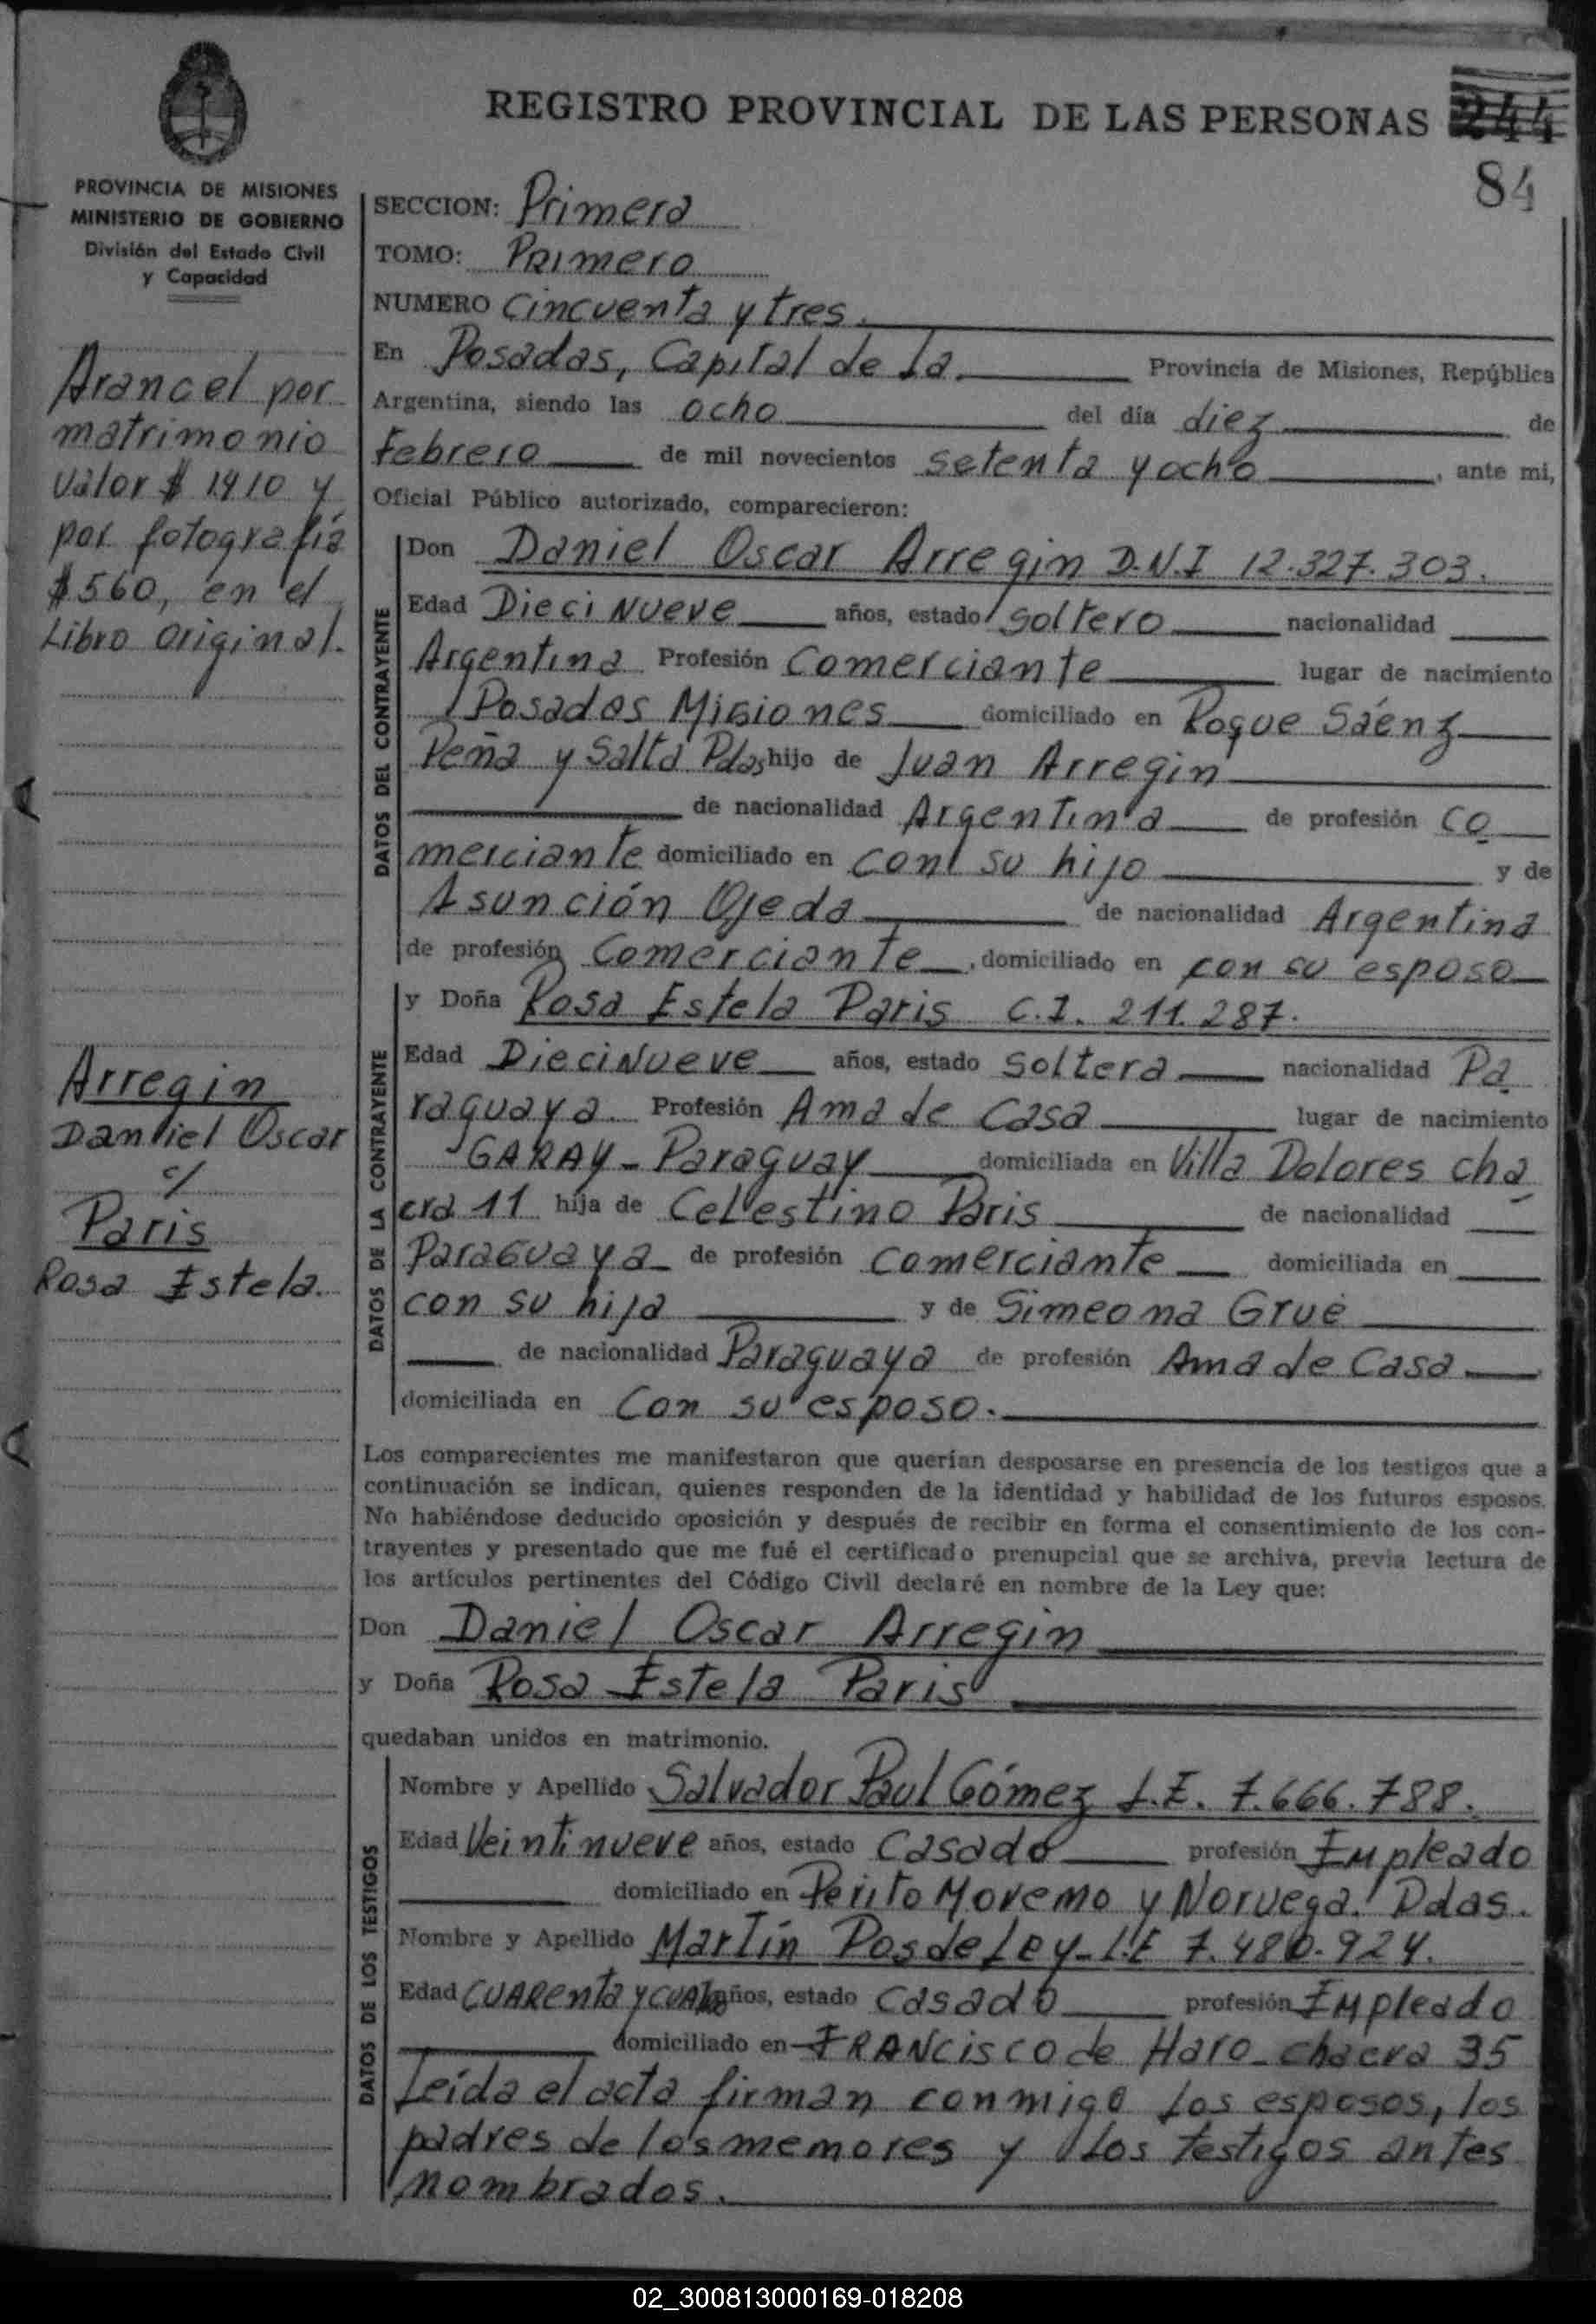 REGISTRO PROVINCIAL DE LAS PERSONAS 244
84
PROVINCIA DE MISIONES
MINISTERIO DE GOBIERNO
División del Estado Civil
y Capacidad
Arancel por
matrimonio
valor $ 1410 y
por fotografía
$560, en el
Libro original.
Arregin
Daniel Oscar
c/
Paris
Rosa Estela.
SECCION: Primera
TOMO: Primero
NUMERO Cincuenta y tres.
En Posadas, Capital de la Provincia de Misiones, República
Argentina, siendo las ocho del día diez de
Febrero de mil novecientos setenta y ocho, ante mi,
Oficial Público autorizado, comparecieron:
DATOS DEL CONTRAYENTE
Don Daniel Oscar Arregin D.N.I 12.327.303.
Edad DieciNueve años, estado soltero nacionalidad
Argentina Profesión Comerciante lugar de nacimiento
Posadas Misiones domiciliado en Roque Sáenz
Peña y Salta Pdas hijo de Juan Arregin
de nacionalidad Argentina de profesión co
merciante domiciliado en con su hijo y de
Asunción Ojeda de nacionalidad Argentina
de profesión Comerciante, domiciliado en con su esposo
DATOS DE LA CONTRAYENTE
y Doña Rosa Estela Paris C.I. 211.287.
Edad DieciNueve años, estado soltera nacionalidad Pa
raguaya. Profesión Ama de Casa lugar de nacimiento
GARAY - Paraguay domiciliada en Villa Dolores cha
cra 11 hija de Celestino Paris de nacionalidad
Paraguaya de profesión comerciante domiciliada en
con su hija y de Simeona Grue
de nacionalidad Paraguaya de profesión Ama de Casa
domiciliada en Con su esposo.
Los comparecientes me manifestaron que querían desposarse en presencia de los testigos que a
continuación se indican, quienes responden de la identidad y habilidad de los futuros esposos.
No habiéndose deducido oposición y después de recibir en forma el consentimiento de los con-
trayentes y presentado que me fué el certificado prenupcial que se archiva, previa lectura de
los artículos pertinentes del Código Civil declaré en nombre de la Ley que:
Don Daniel Oscar Arregin
y Doña Rosa Estela Paris
quedaban unidos en matrimonio.
DATOS DE LOS TESTIGOS
Nombre y Apellido Salvador Paul Gómez L.E. 7.666.788.
Edad Veintinueve años, estado Casado profesión Empleado
domiciliado en Perito Moremo y Noruega. Pdas.
Nombre y Apellido Martín Posdeley - L.E 7.480.924.
Edad CUARenta y cuatro años, estado casado profesión Empleado
domiciliado en FRANcisco de Haro - chacra 35
Leída el acta firman conmigo los esposos, los
padres de los memores y los testigos antes
nombrados.
02_300813000169-018208